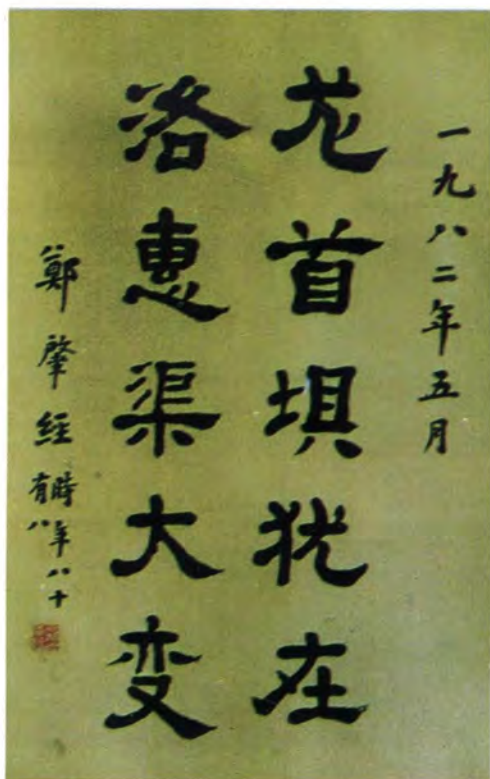 一九八二年五月
龙首坝犹在
洛惠渠大变
鄭肇經時年八十
有八